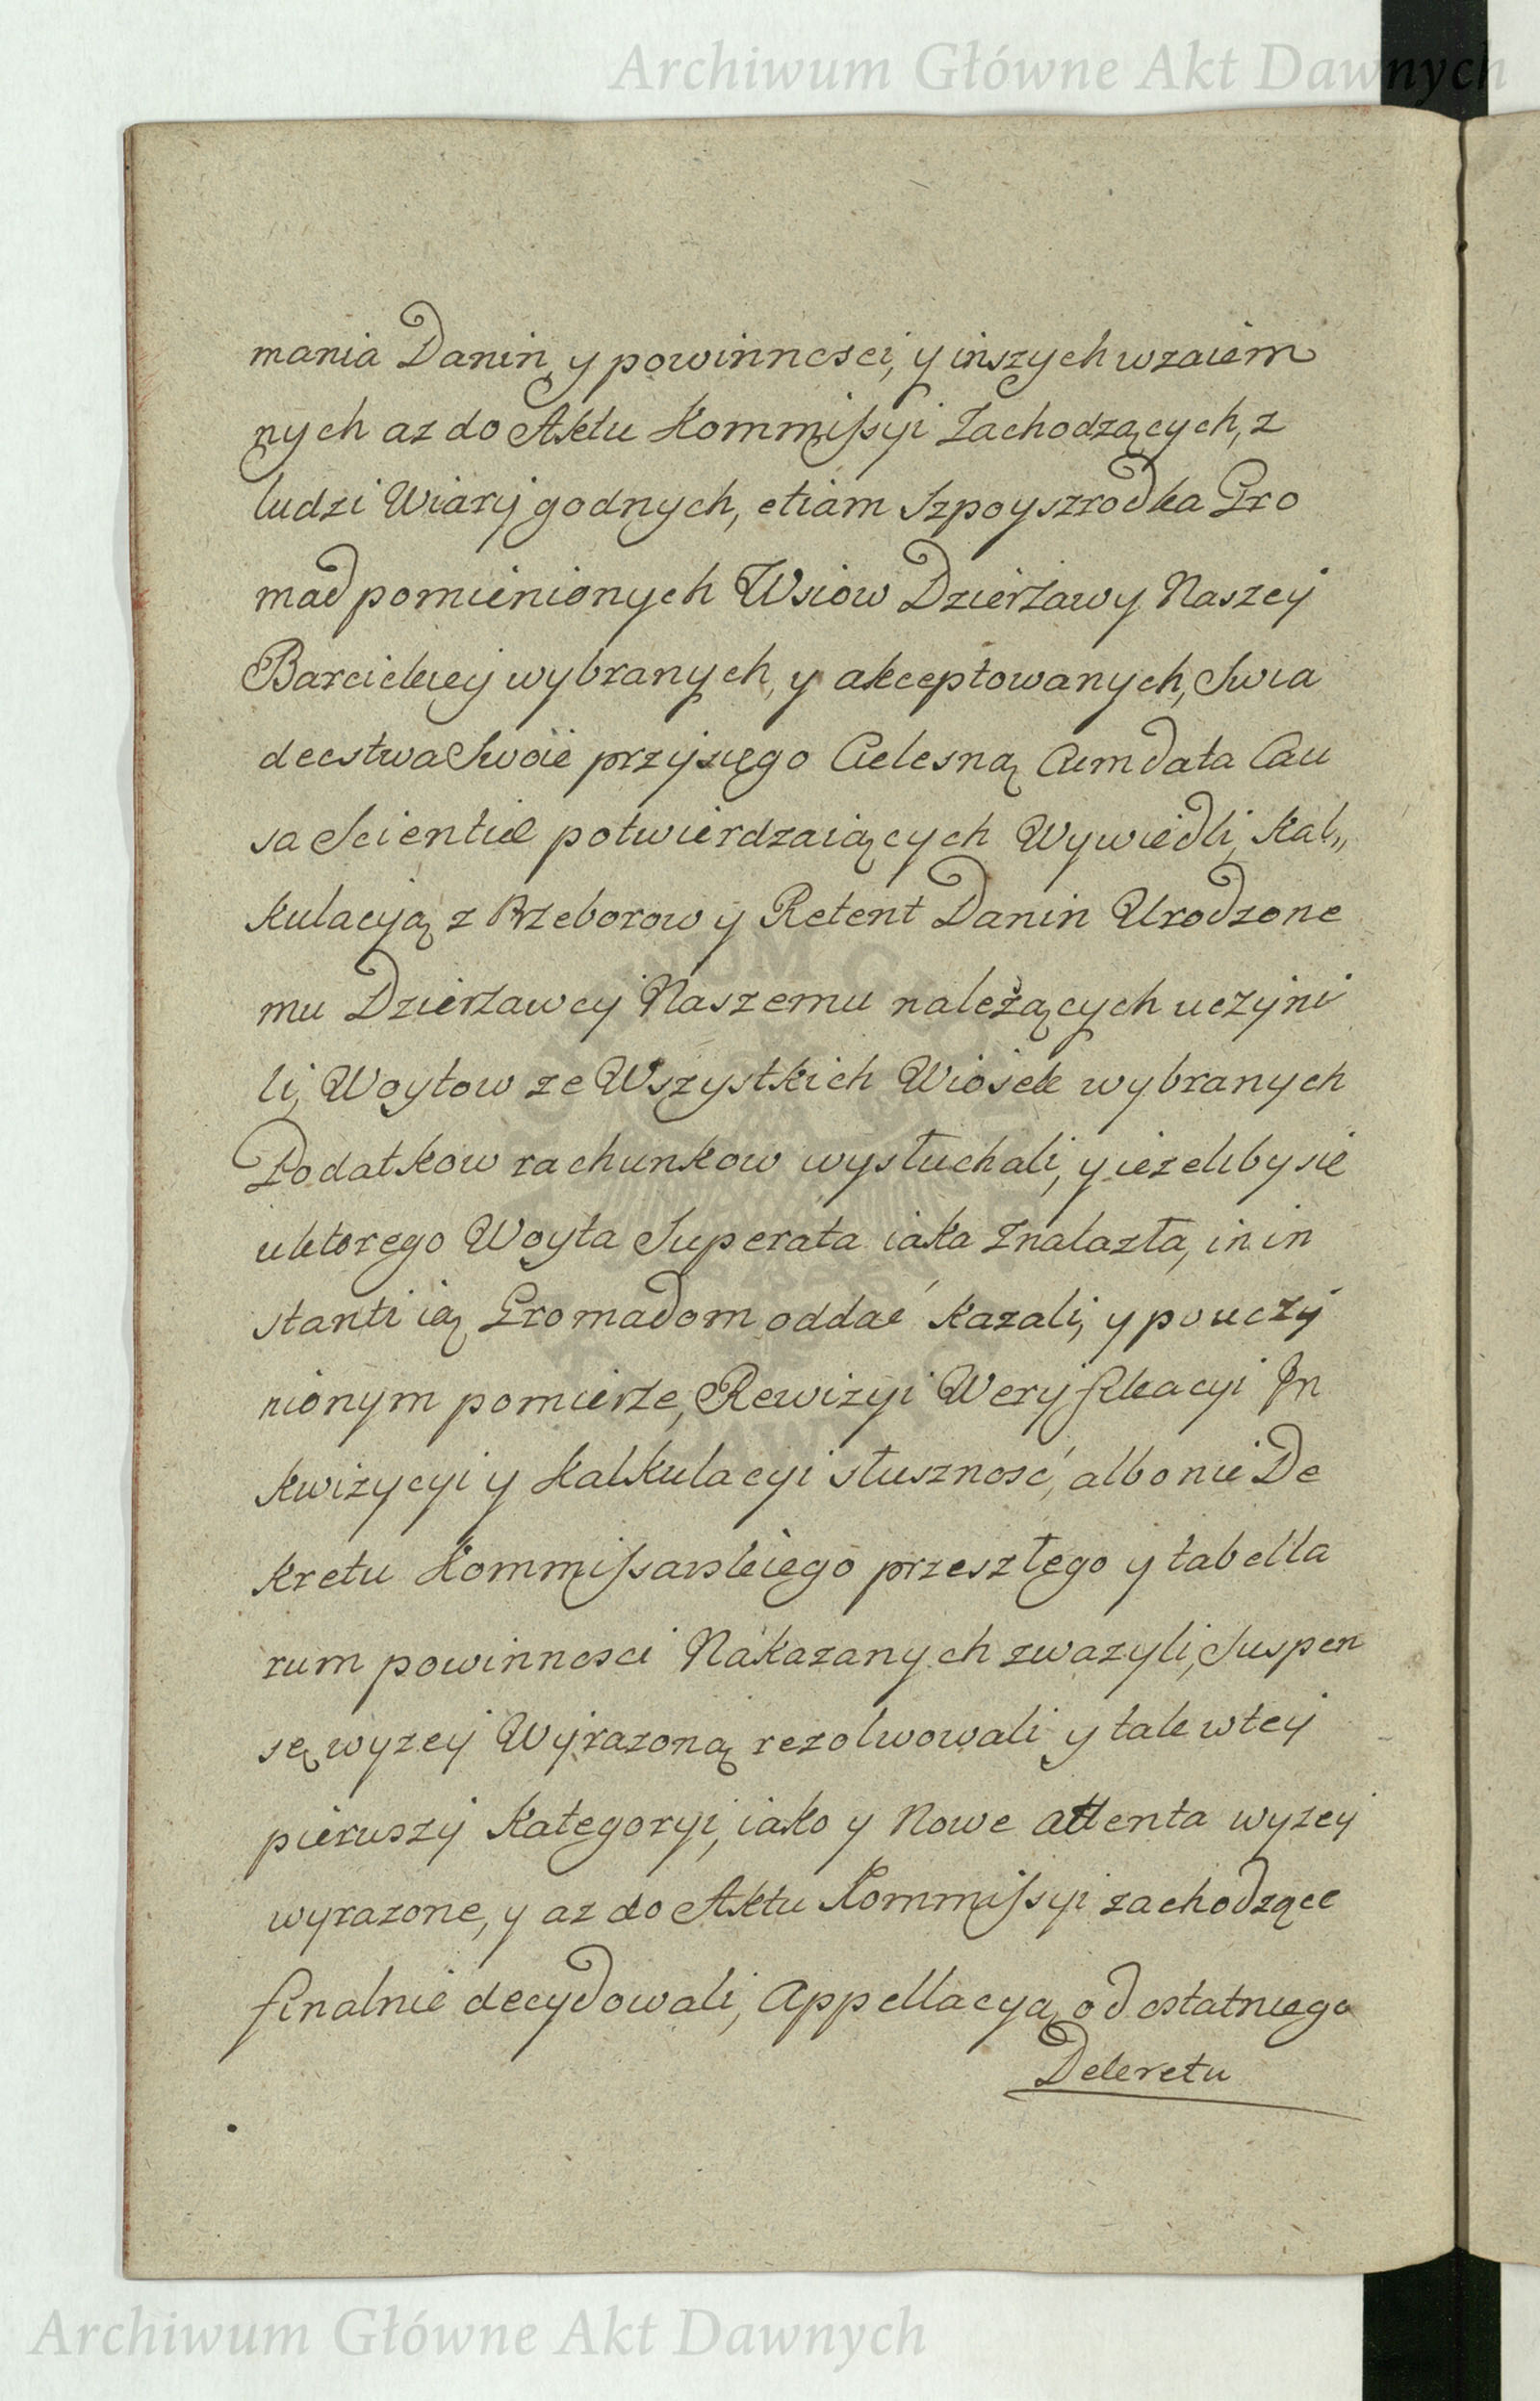 Archiwum Główne Akt Dawnych
mania Danin, y powinnosci, y inszych wzaiem
nych az do Aktu Kommissyi Zachodzących, z
ludzi Wiary godnych, etiam Szpoyszrodka Gro
mad pomienionych Wsiow Dzierżawy Naszey
Barcickiey wybranych, y akceptowanych, Swia
dectwa Swoie przysięgo Cielesną Cum data Cau
sa Scientiæ potwierdzaiących Wywiedli, Kal„
kulacyą z Przeborow y Retent Danin Urodzone
mu Dzierżawcy Naszemu należących uczyni
li, Woytow ze Wszystkich Wiosek wybranych
Podatkow rachunkow wysłuchali, y iezeliby sie
u ktorego Woyta Superata iaka Znalazła, in in
stanti ią Gromadom oddać kazali, y po uczy
nionym pomierze, Rewizyi Weryfikacyi In
kwizycyi y Kalkulacyi słusznosć, albo nie De
kretu Kommissarskiego przeszłego y tabella
rum powinnosci Nakazanych zwazyli, Suspen
sę wyzey Wyrazoną rezolwowali y tak w tey
pierwszy Kategoryi, iako y Nowe attenta wyzey
wyrazone, y az do Aktu Kommissyi zachodzące
finalnie decydowali, Appellacyą od ostatniego
Dekretu
Archiwum Główne Akt Dawnych